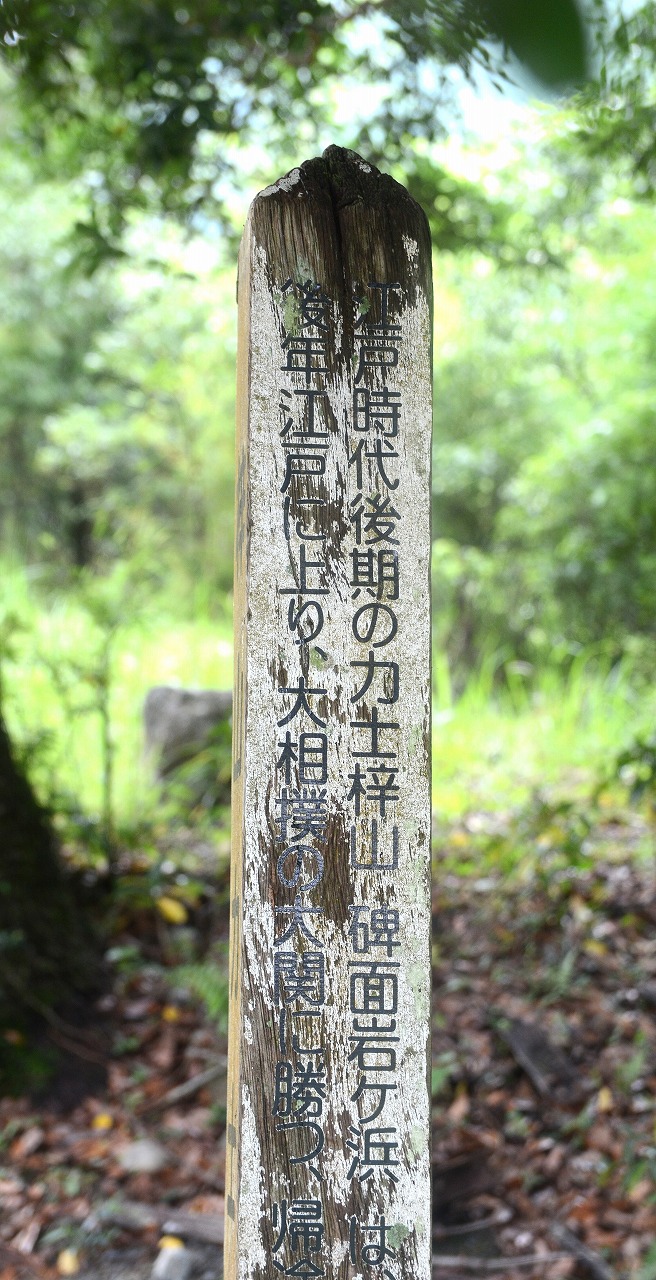 江戸時代後期の力士梓山 碑面岩ケ浜 は、
後年江戸に上り、大相撲の大関に勝つ、帰途